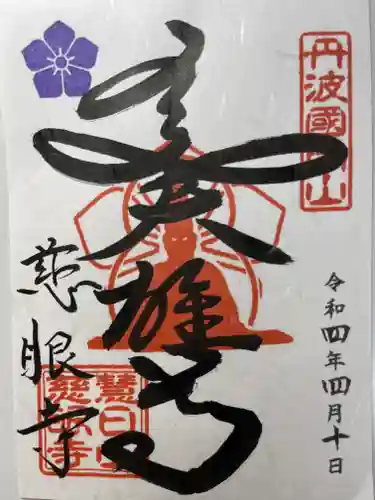 丹波國周山
令和四年四月十日
大雄
慈眼寺
慧日山
慈眼寺